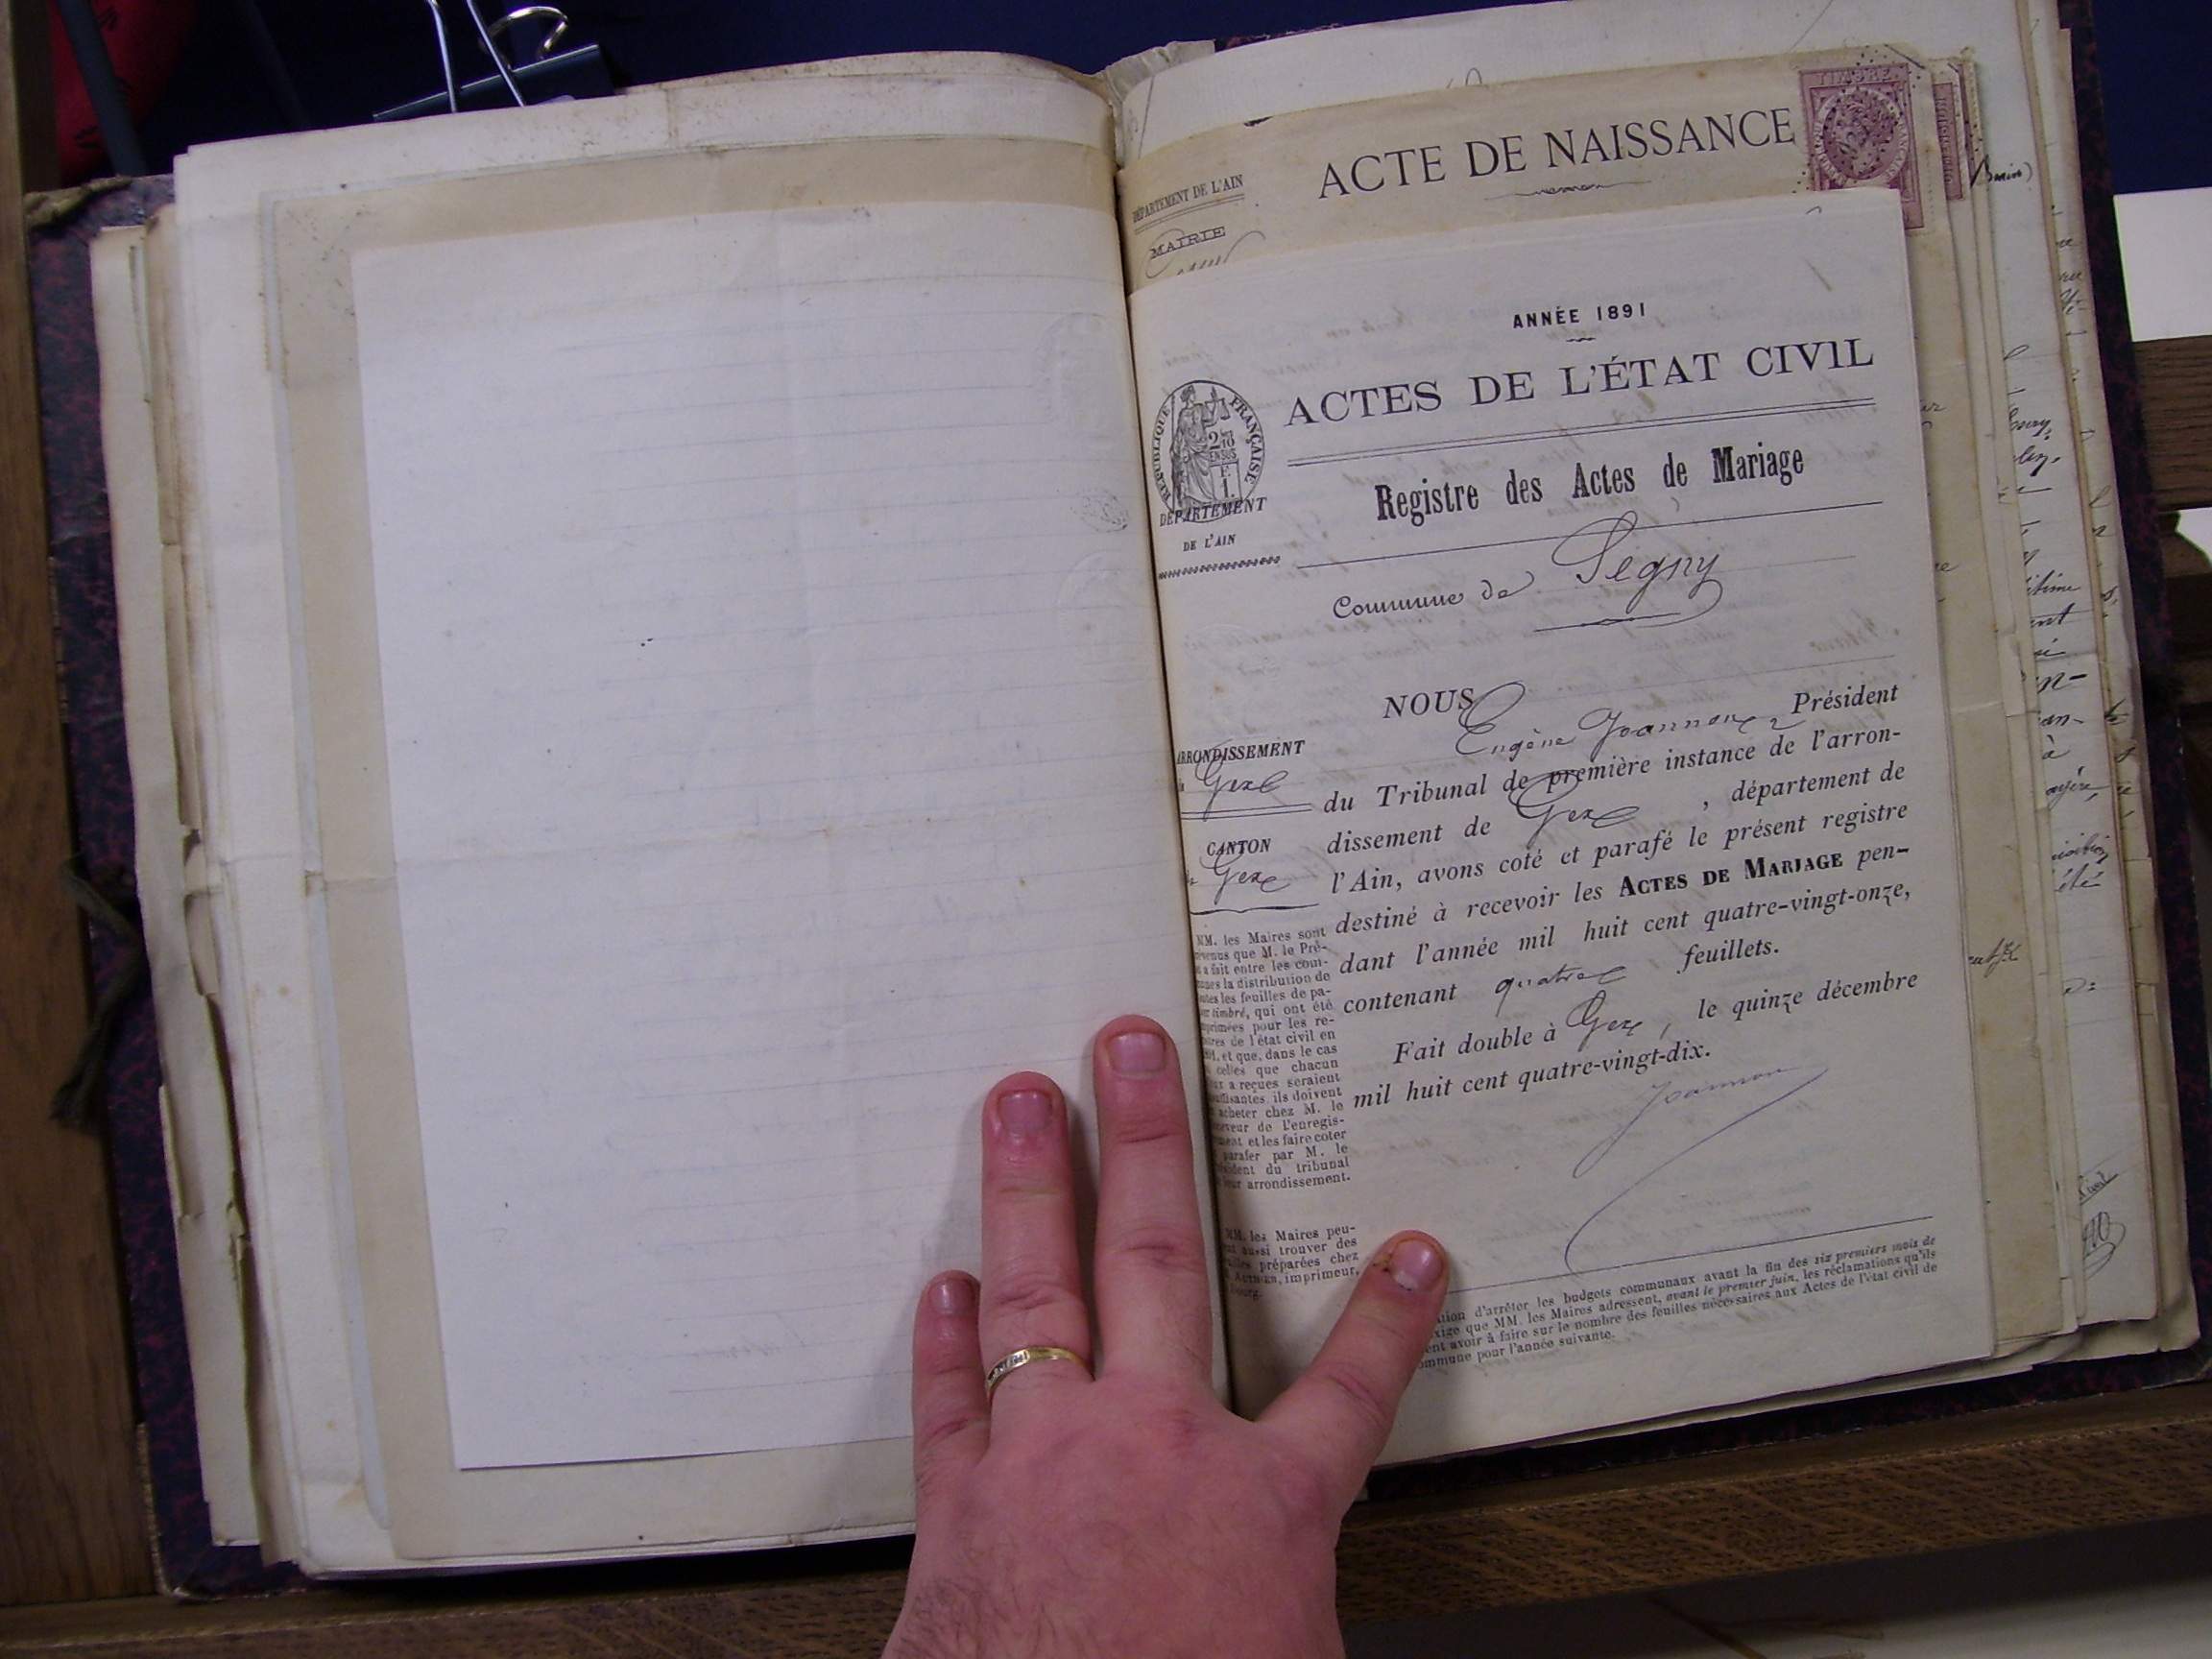 ACTE DE NAISSANCE
TIMBRE
DÉPARTEMENT DE L'AIN
MAIRIE
ANNÉE 1891
ACTES DE L'ÉTAT CIVIL
RÉPUBLIQUE FRANÇAISE
Registre des Actes de Mariage
DÉPARTEMENT
DE L'AIN
Commune de Segny
NOUS Eugène Joannon Président
du Tribunal de première instance de l'arron-
dissement de Gex, département de
l'Ain, avons coté et parafé le présent registre
destiné à recevoir les ACTES DE MARIAGE pen-
dant l'année mil huit cent quatre-vingt-onze,
contenant quatre feuillets.
Fait double à Gex, le quinze décembre
mil huit cent quatre-vingt-dix.
Joannon
ARRONDISSEMENT
Gex
CANTON
Gex
MM. les Maires sont
que M. le Pré-
a fait entre les com-
la distribution de
les feuilles de pa-
timbré, qui ont été
pour les re-
de l'état civil en
et que, dans le cas
celles que chacun
a reçues seraient
ils doivent
acheter chez M. le
de l'enregis-
et les faire coter
parafer par M. le
du tribunal
arrondissement.
MM. les Maires peu-
aussi trouver des
préparées chez
imprimeur,
d'arrêter les budgets communaux avant la fin des six premiers mois de
que MM. les Maires adressent, avant le premier juin, les réclamations qu'ils
avoir à faire sur le nombre des feuilles nécessaires aux Actes de l'état civil de
commune pour l'année suivante.